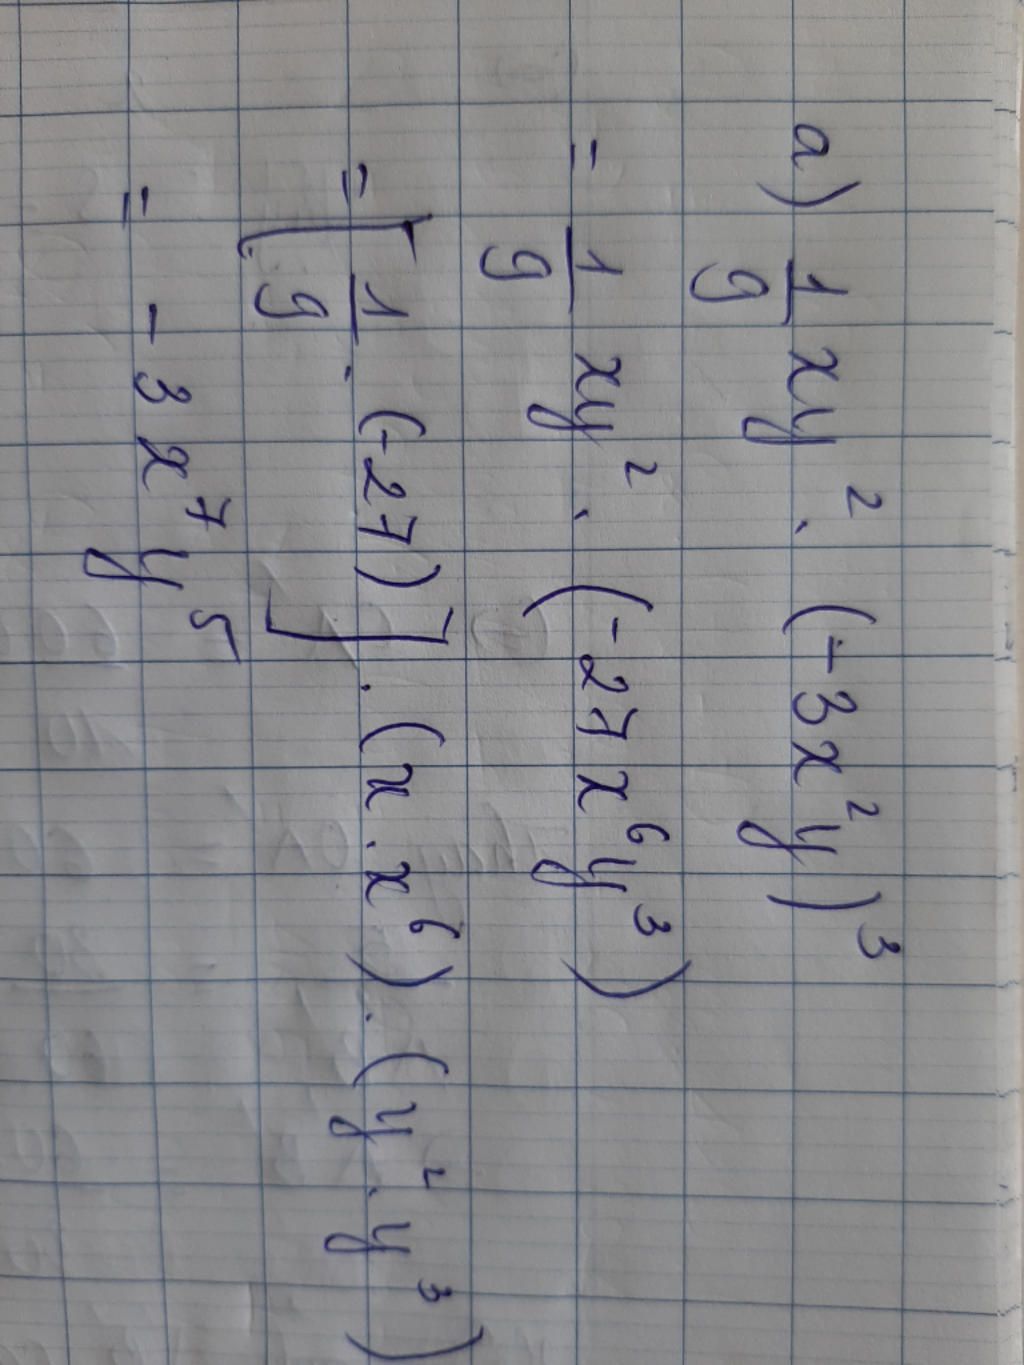 a) 1/9 xy² . (-3x²y)³
= 1/9 xy² . (-27x⁶y³)
= [1/9 . (-27)] . (x . x⁶) . (y² . y³)
= -3x⁷y⁵